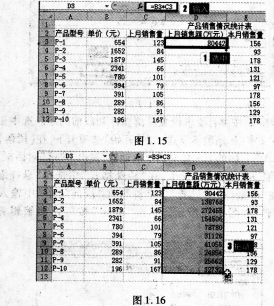 D3 =B3*C3 2 输入
A B C
产品销售情况统计表
产品型号 单价(元) 上月销售量 上月销售额(万元) 本月销售量
P-1 654 123 80442 156
P-2 1652 84 93
P-3 1879 145 178
P-4 2341 66 131
P-5 780 101 121
P-6 394 79 97
P-7 391 105 178
P-8 289 86 156
P-9 282 91 129
P-10 196 167 178
图 1.15
D3 =B3*C3
产品销售情况统计表
产品型号 单价(元) 上月销售量 上月销售额(万元) 本月销售量
P-1 654 123 80442 156
P-2 1652 84 138768 93
P-3 1879 145 272455 178
P-4 2341 66 154506 131
P-5 780 101 78780 121
P-6 394 79 31126 97
P-7 391 105 41055
P-8 289 86 24854 156
P-9 282 91 25662 129
P-10 196 167 32732 178
图 1.16